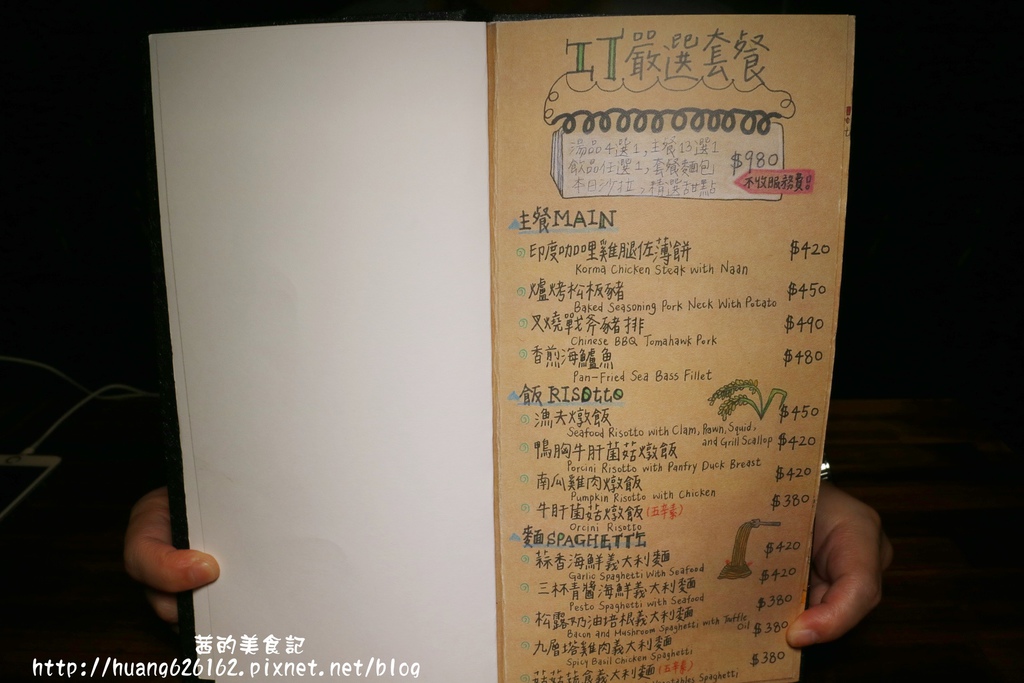 IT嚴選套餐
湯品4選1,主餐13選1
飲品任選1,套餐麵包
本日沙拉,精選甜點
$980
不收服務費!
主餐MAIN
印度咖哩雞腿佐薄餅 $420
Korma Chicken Steak with Naan
爐烤松板豬 $450
Baked Seasoning Pork Neck With Potato
叉燒戰斧豬排 $490
Chinese BBQ Tomahawk Pork
香煎海鱸魚 $480
Pan-Fried Sea Bass Fillet
飯RISOtto
漁夫燉飯 $450
Seafood Risotto with Clam, Prawn, Squid, and Grill Scallop
鴨胸牛肝菌菇燉飯 $420
Porcini Risotto with Panfry Duck Breast
南瓜雞肉燉飯 $420
Pumpkin Risotto with Chicken
牛肝菌菇燉飯(五辛素) $380
Orcini Risotto
麵SPAGHETTI
蒜香海鮮義大利麵 $420
Garlic Spaghetti with Seafood
三杯青醬海鮮義大利麵 $420
Pesto Spaghetti with Seafood
松露奶油培根義大利麵 $380
Bacon and Mushroom Spaghetti with Truffle Oil
九層塔雞肉義大利麵 $380
Spicy Basil Chicken Spaghetti
義大利麵(五辛素) $380
Spaghetti
茜的美食記
http://huang626162.pixnet.net/blog